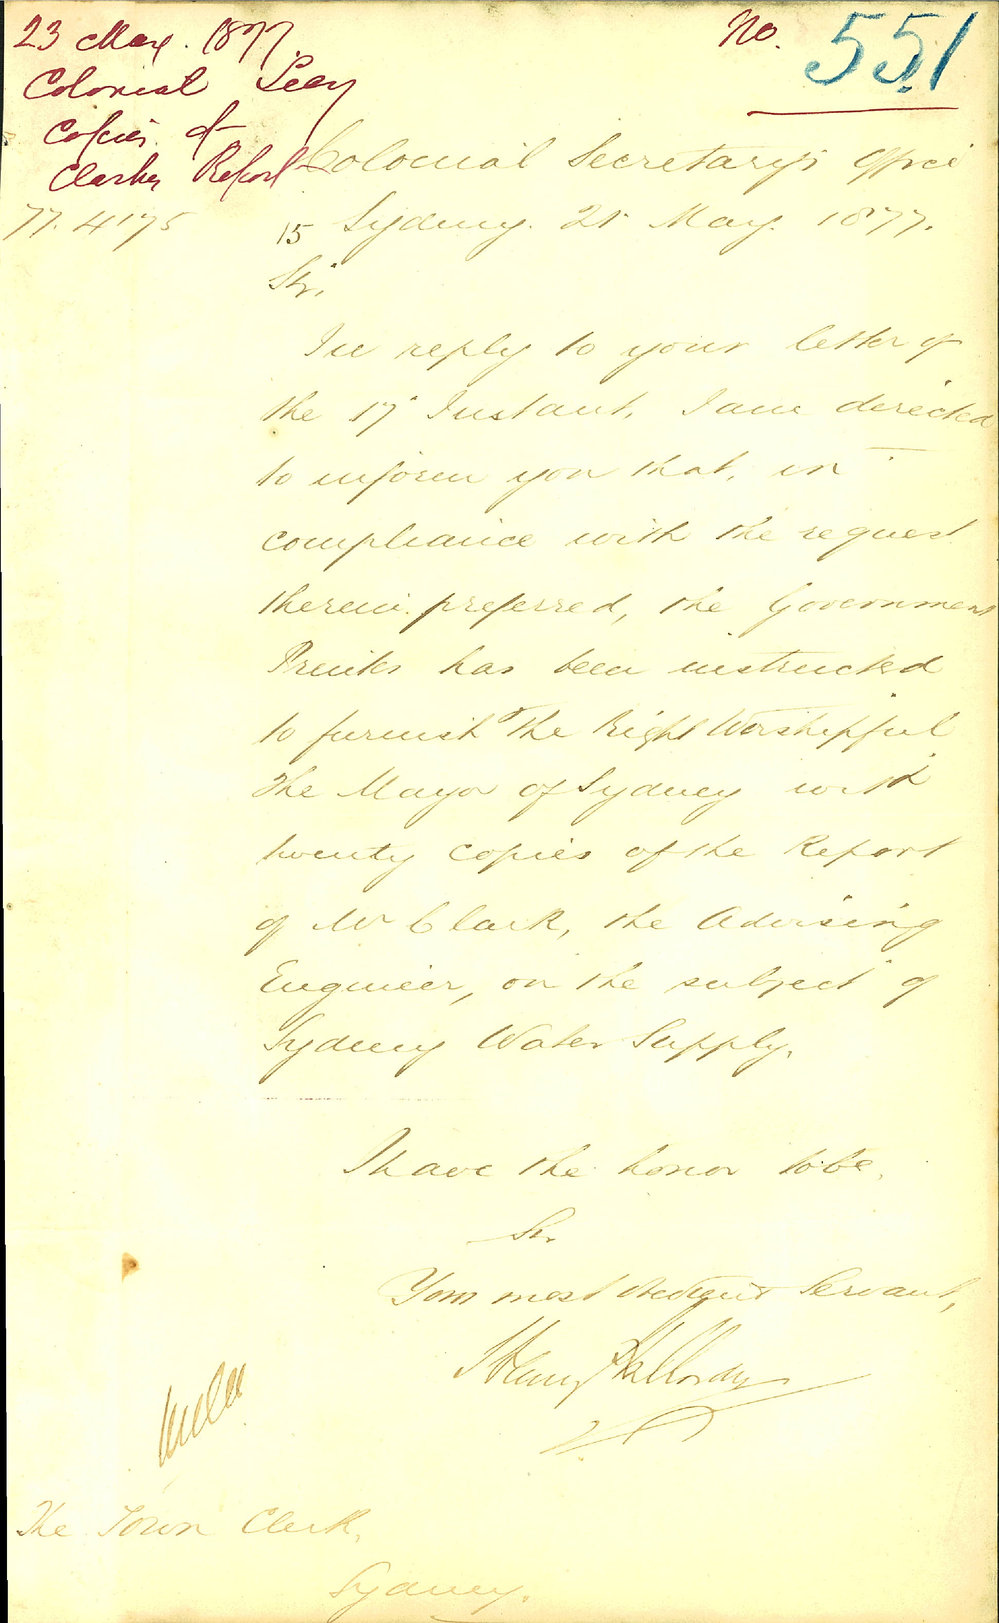 23 May. 1877.
Colonial Secy
Copies of
Clarkes Report
No. 551
Colonial Secretary's Office
77. 4175
15 Sydney. 21 May. 1877.
Sir,
In reply to your letter of
the 17 Instant, I am directed
to inform you that, in
compliance with the request
therein preferred, the Government
Printer has been instructed
to furnish the Right Worshipful
the Mayor of Sydney with
twenty copies of the Report
of Mr Clark, the Advising
Engineer, on the subject of
Sydney Water Supply.
I have the honor to be,
Sir
Your most obedient Servant,
Henry Halloran
The Town Clerk,
Sydney.